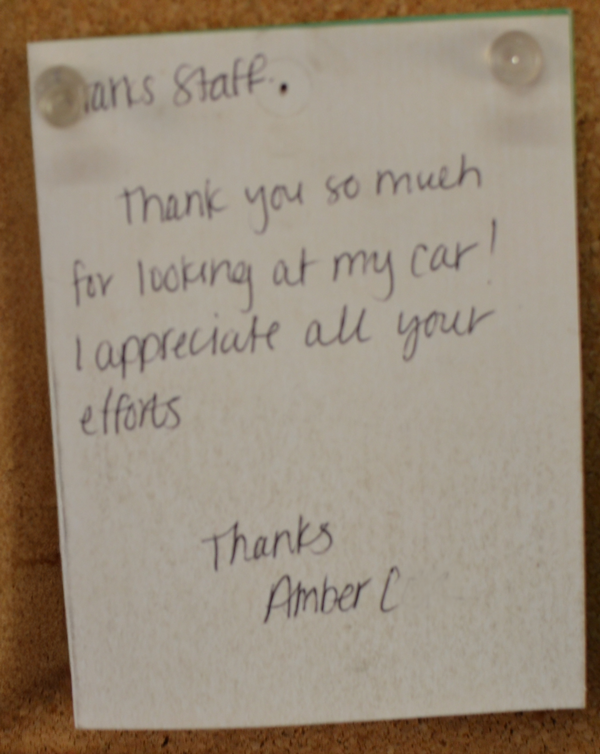 Staff.
Thank you so much
for looking at my car!
I appreciate all your
efforts
Thanks
Amber C